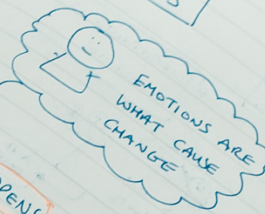 EMOTIONS ARE
WHAT CAUSE
CHANGE